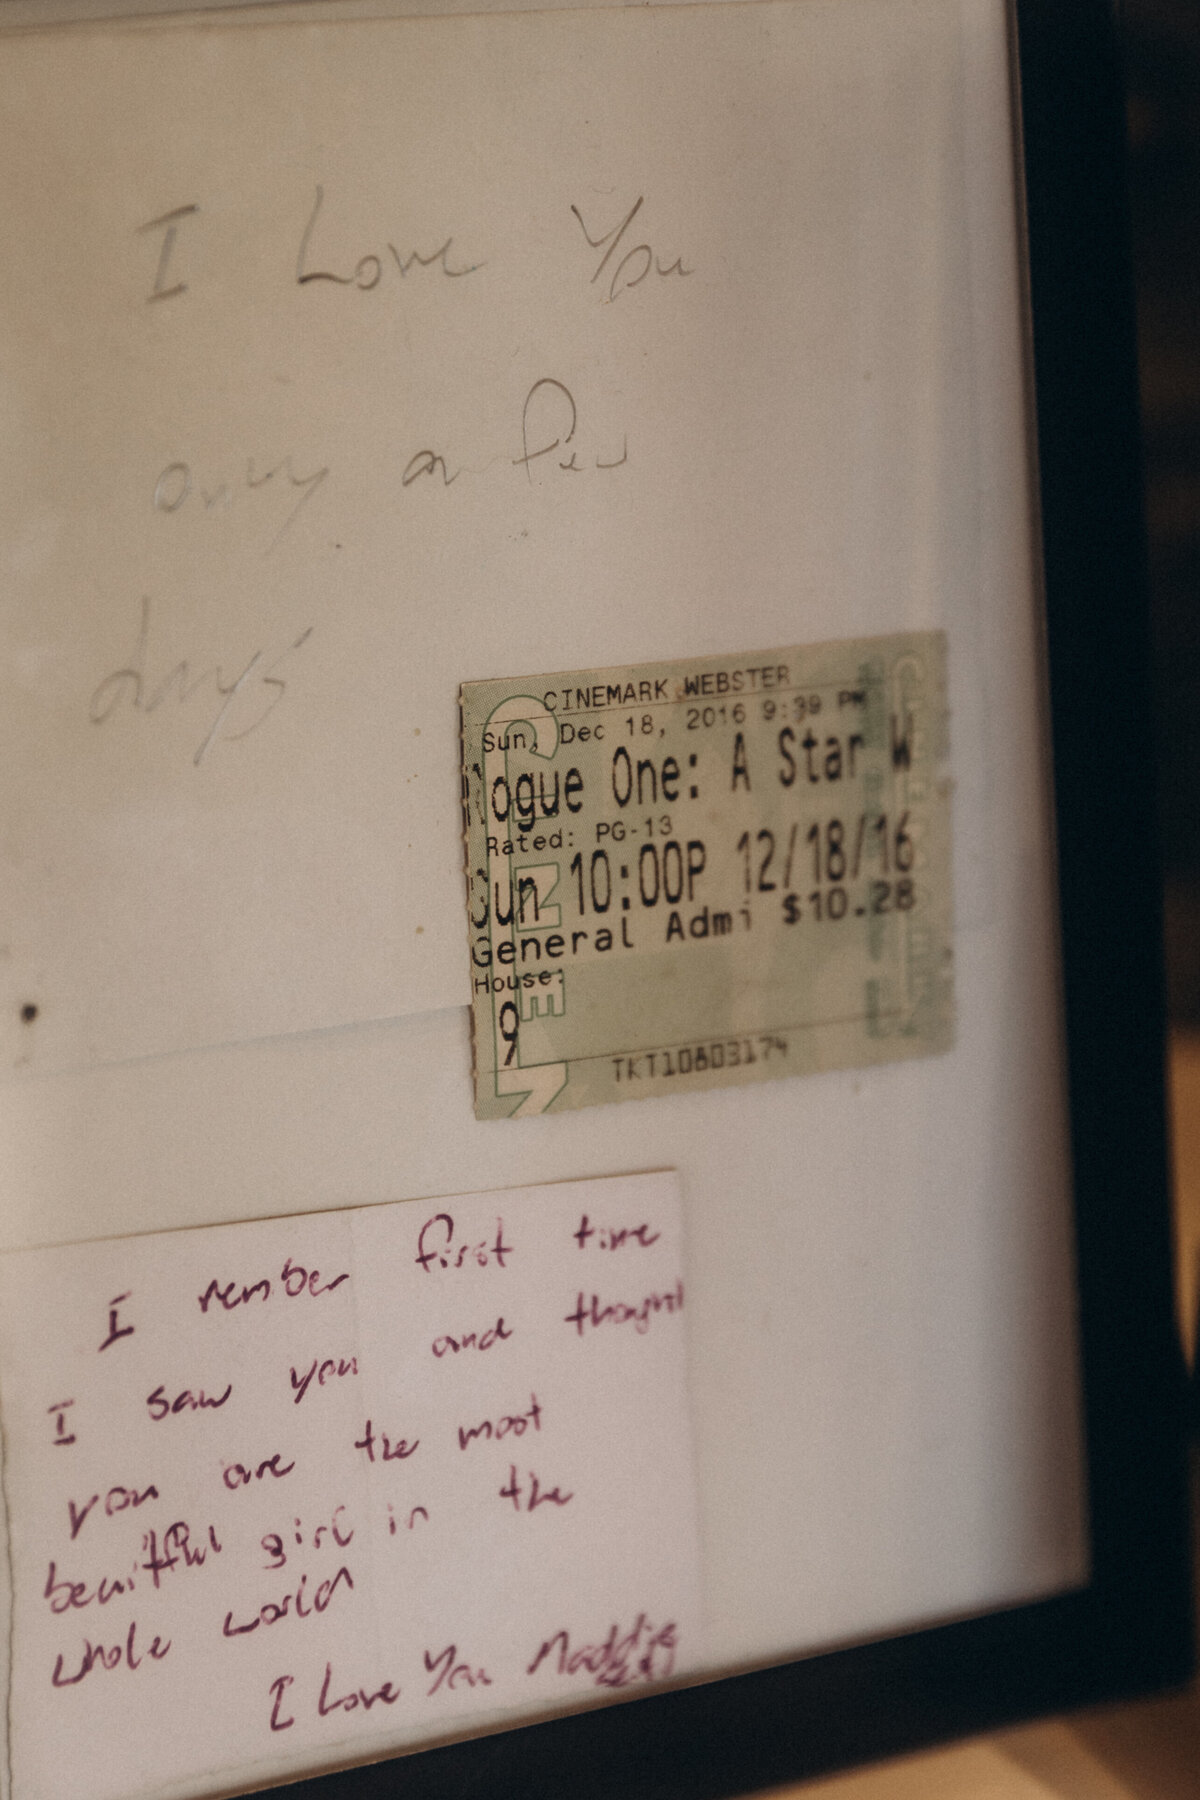 I Love You
only a few
days
CINEMARK WEBSTER
Sun, Dec 18, 2016 9:39 PM
Rogue One: A Star W
Rated: PG-13
Sun 10:00P 12/18/16
General Admi $10.28
House:
9
TKT10803174
I rember first time
I saw you and thought
you are the most
beautiful girl in the
whole world
I Love You Maddie